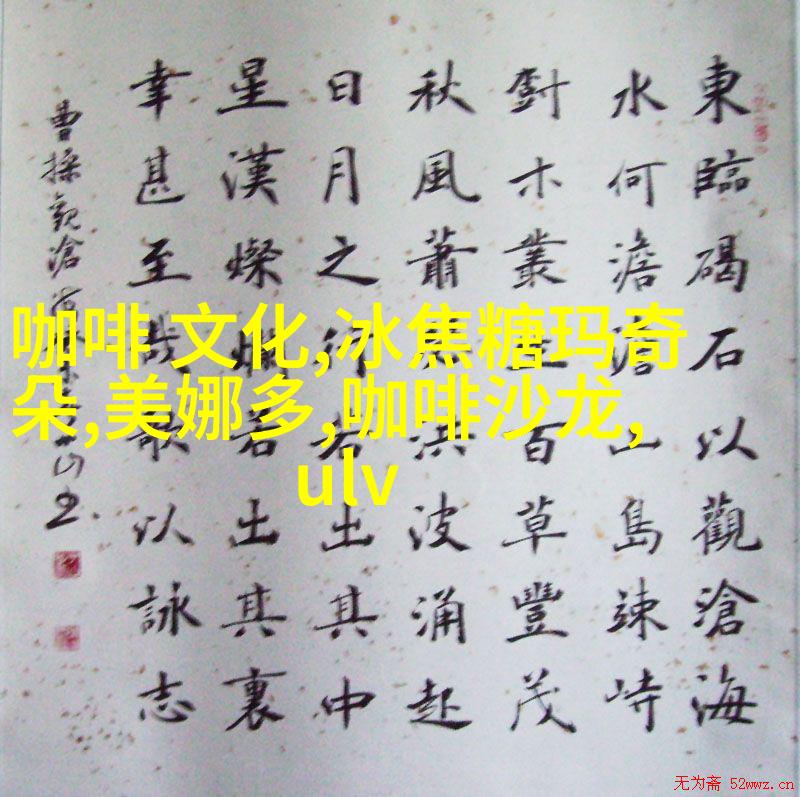 東臨碣石以觀滄海
水何澹澹山島竦峙
尌木叢生百草豐茂
秋風蕭洪波涌起
日月之行若出其中
星漢燦爛若出其裏
幸甚至哉歌以詠志
曹操觀滄海
咖啡 文化,冰焦糖玛奇
朵,美娜多,咖啡沙龙,
ulv
无为斋 52wwz.cn